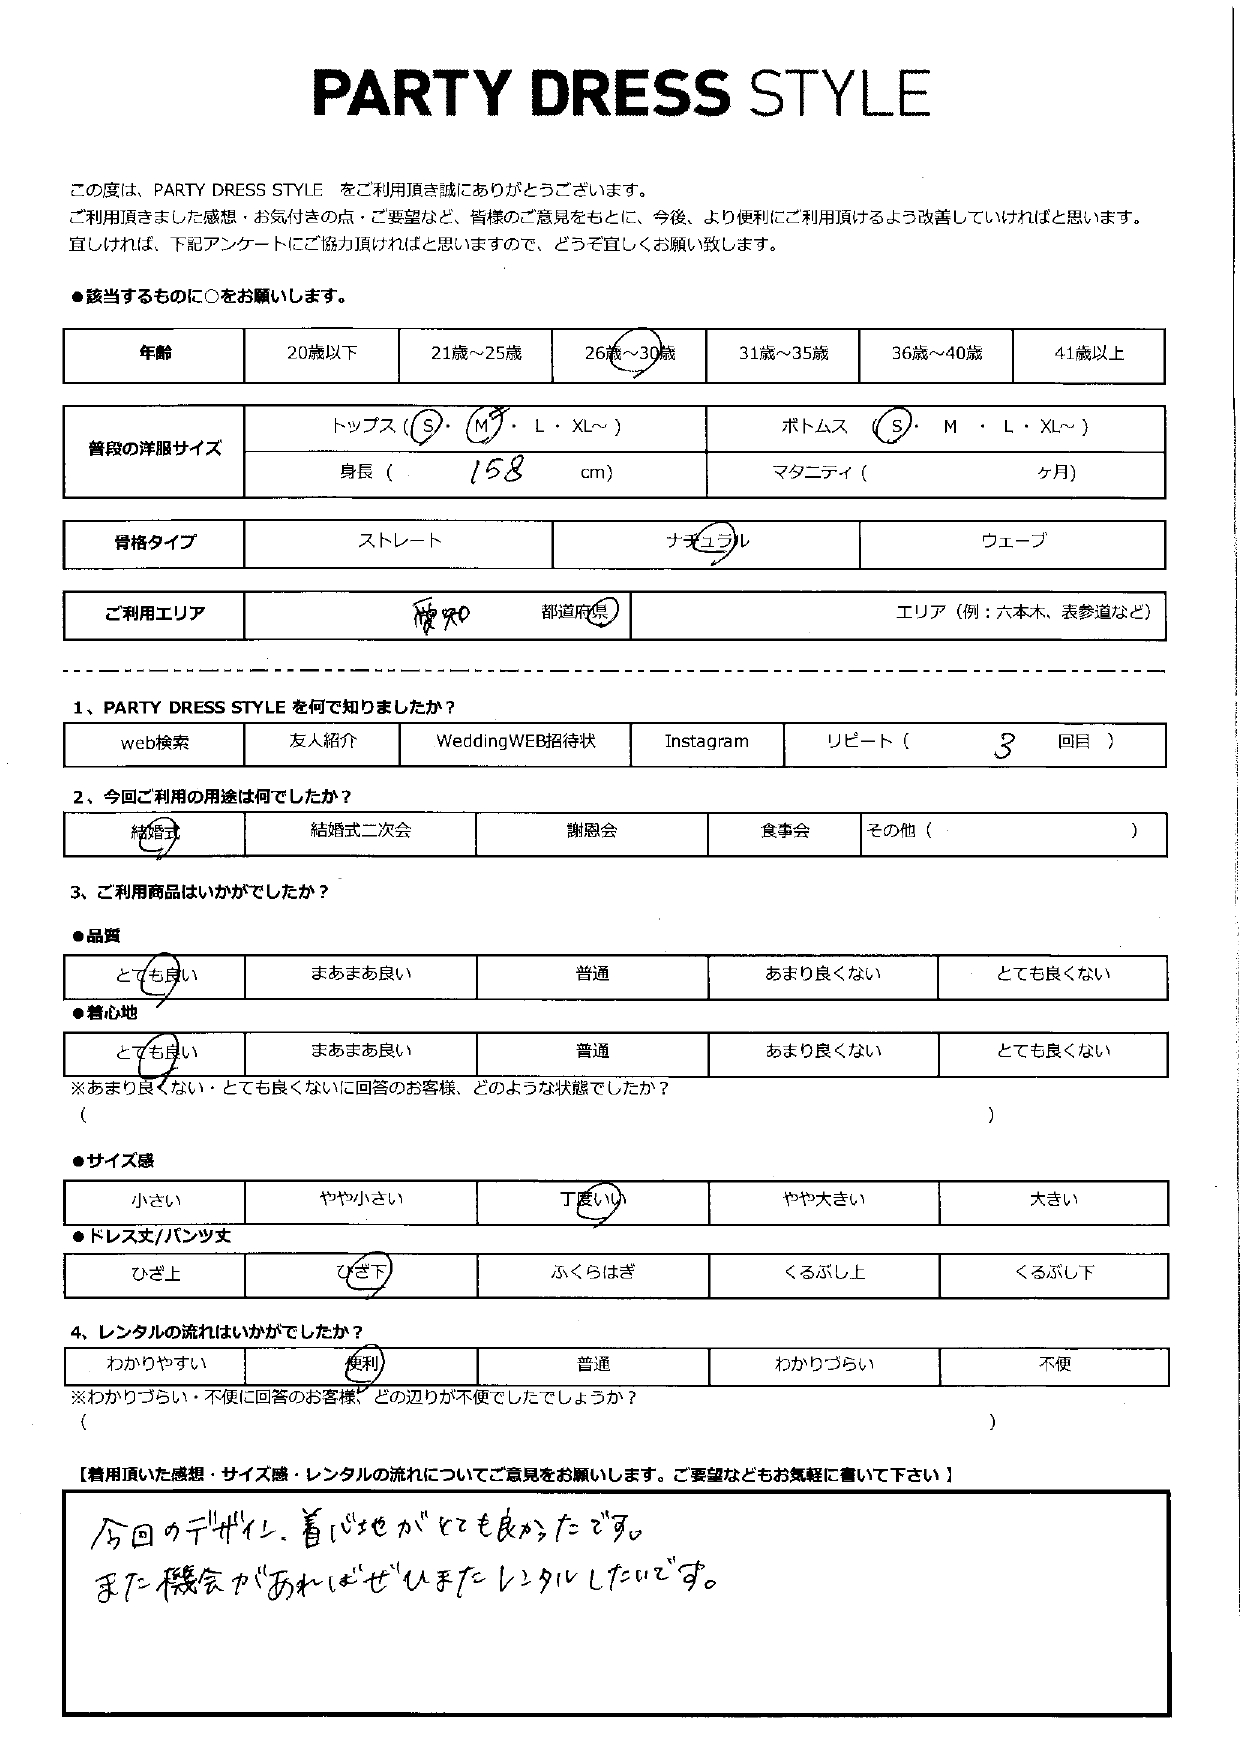 PARTY DRESS STYLE
この度は、PARTY DRESS STYLE をご利用頂き誠にありがとうございます。
ご利用頂きました感想・お気付きの点・ご要望など、皆様のご意見をもとに、今後、より便利にご利用頂けるよう改善していければと思います。
宜しければ、下記アンケートにご協力頂ければと思いますので、どうぞ宜しくお願い致します。
●該当するものに○をお願いします。
年齢 20歳以下 21歳～25歳 26歳～30歳 31歳～35歳 36歳～40歳 41歳以上
普段の洋服サイズ
トップス ( S ・ M ・ L ・ XL～ ) ボトムス ( S ・ M ・ L ・ XL～ )
身長 ( 158 cm) マタニティ ( ヶ月)
骨格タイプ ストレート ナチュラル ウェーブ
ご利用エリア 愛知 都道府県 エリア（例：六本木、表参道など）
1、PARTY DRESS STYLE を何で知りましたか？
web検索 友人紹介 WeddingWEB招待状 Instagram リピート ( 3 回目 )
2、今回ご利用の用途は何でしたか？
結婚式 結婚式二次会 謝恩会 食事会 その他 ( )
3、ご利用商品はいかがでしたか？
●品質
とても良い まあまあ良い 普通 あまり良くない とても良くない
●着心地
とても良い まあまあ良い 普通 あまり良くない とても良くない
※あまり良くない・とても良くないに回答のお客様、どのような状態でしたか？
( )
●サイズ感
小さい やや小さい 丁度いい やや大きい 大きい
●ドレス丈/パンツ丈
ひざ上 ひざ下 ふくらはぎ くるぶし上 くるぶし下
4、レンタルの流れはいかがでしたか？
わかりやすい 便利 普通 わかりづらい 不便
※わかりづらい・不便に回答のお客様、どの辺りが不便でしたでしょうか？
( )
【着用頂いた感想・サイズ感・レンタルの流れについてご意見をお願いします。ご要望などもお気軽に書いて下さい 】
今回のデザイン、着心地がとても良かったです。
また機会があればぜひまたレンタルしたいです。